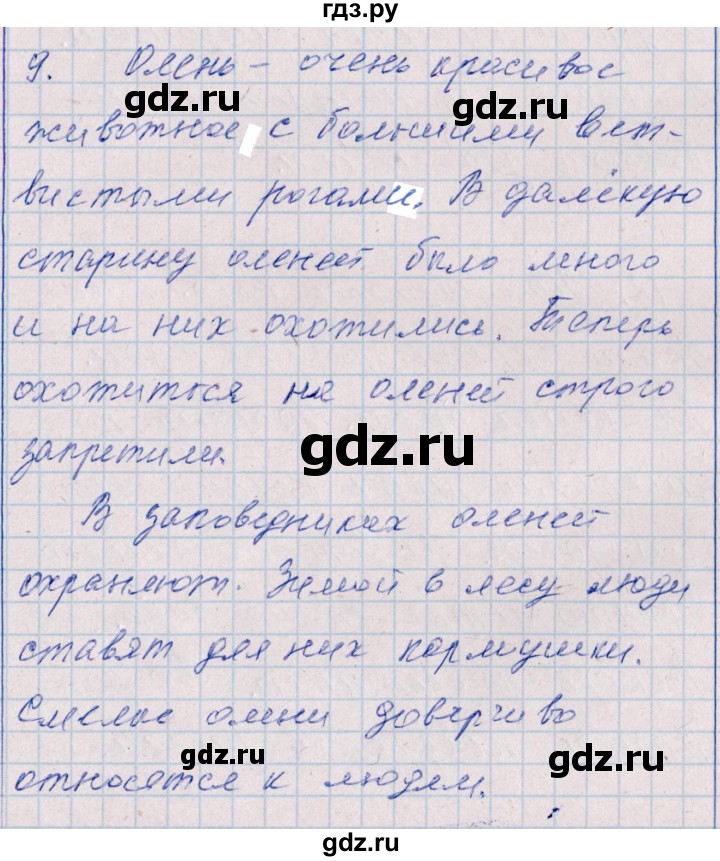 гдз.ру
9. Олень – очень красивое
gdz.ru gdz.ru
животное с большими вет-
вистыми рогами. В далёкую
gdz.ru gdz.ru
старину оленей было много
и на них охотились. Теперь
охотиться на оленей строго
запретили.
gdz.ru
В заповедниках оленей
охраняют. Зимой в лесу люди
ставят для них кормушки.
Смелые олени доверчиво
gdz.ru gdz.ru
относятся к людям.
gdz.ru